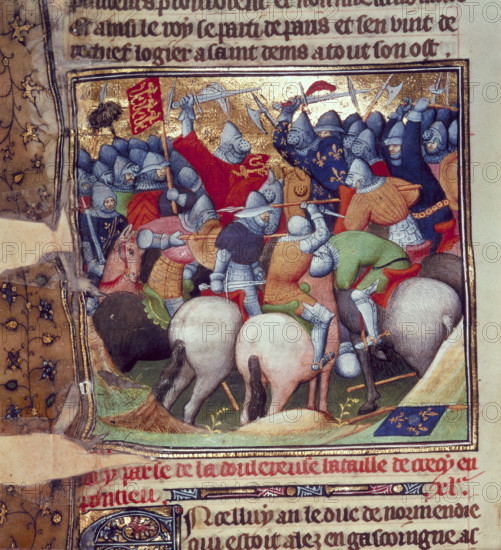 et ainsi le roy se parti de paris et sen vint de
rechief logier a saint denis a tout son ost
parle de la doulereuse bataille de crecy en
pontieu. .xl.
En celluy an le duc de normendie
qui estoit alez en gascoingne ac